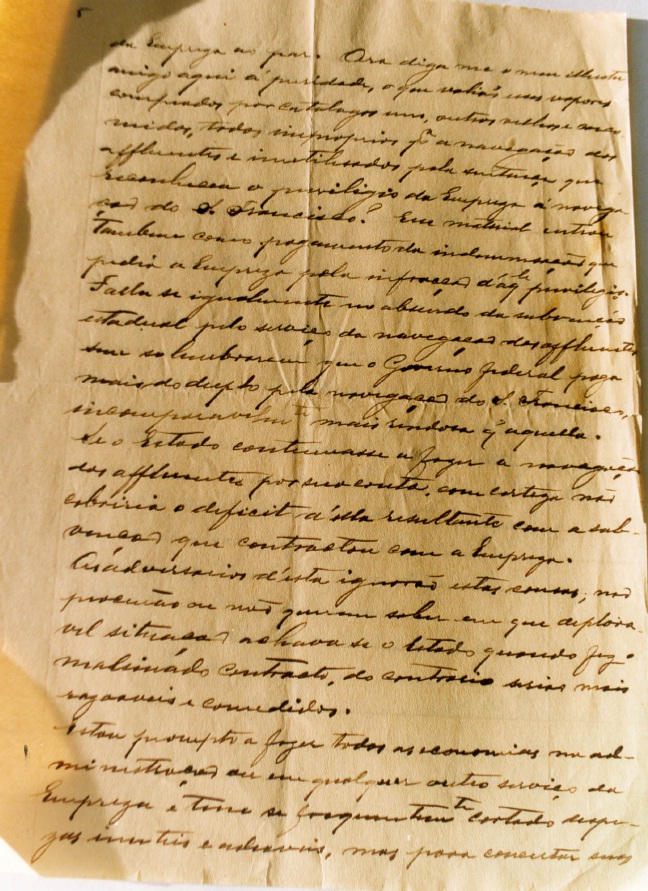 da Empreza ao par. Ora diga me o meu illustre
amigo aqui á puridade, o que valião esses vapores
comprados por catalogos uns, outros velhos e
midos, todos improprios pª a navegação dos
affluentes e inutilisados pela sentença que
reconheceu o privilegio da Empreza á navega
ção do S. Francisco? Em material entrou
tambem como pagamento da indemnisação que
pedia a Empreza pela infracção d'aqle privilegio.
Falla se igualmente no absurdo da subvenção
estadual pelo serviço da navegação dos affluentes
sem se lembrarem que o Governo federal paga
mais do duplo pela navegação do S. Francisco,
incomparavelmte mais rendosa q' aquella.
Se o Estado continuasse a fazer a navegação
dos affluentes por sua conta, com certeza não
cobriria o deficit d'ella resultante com a sub-
venção que contractou com a Empreza.
Os adversarios d'esta ignorão estas cousas, não
procurão ou não querem saber em que deplora-
vel situação achava se o Estado quando fez o
malsinado contracto, do contrario serião mais
rasoaveis e comedidos.
Estou prompto a fazer todas as economias na ad-
ministração ou em qualquer outro serviço da
Empreza e tem se frequentemte cortado despe-
zas inuteis e adiaveis, mas para concertar seus